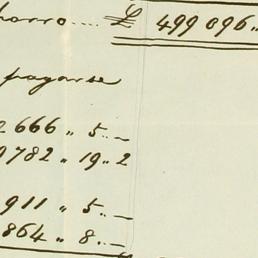 horro.... £ 499 096..
pagarse
2 666 „ 5 „ —
9782 „ 19 „ 2
911 „ 5 „ —
864 „ 8 „ —